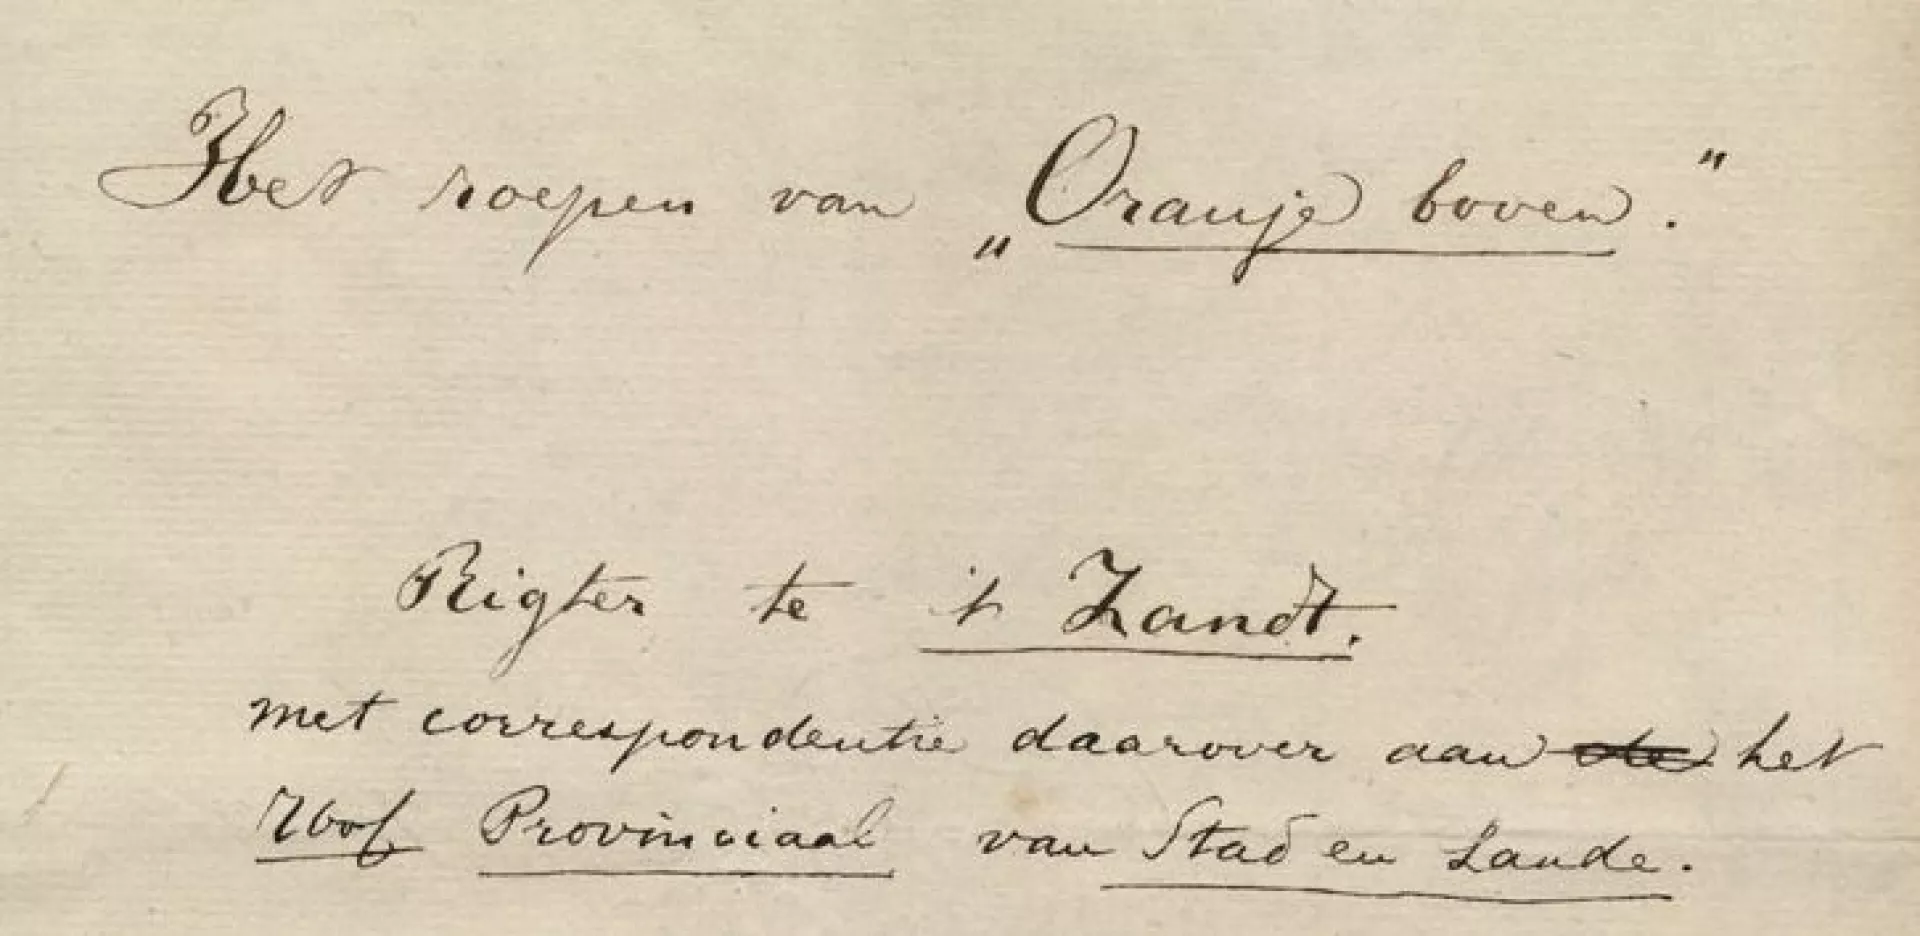 Het roepen van „Oranje boven."
Rigter te 't Zandt.
met correspondentie daarover aan de het
Hof Provinciaal van Stad en Lande.